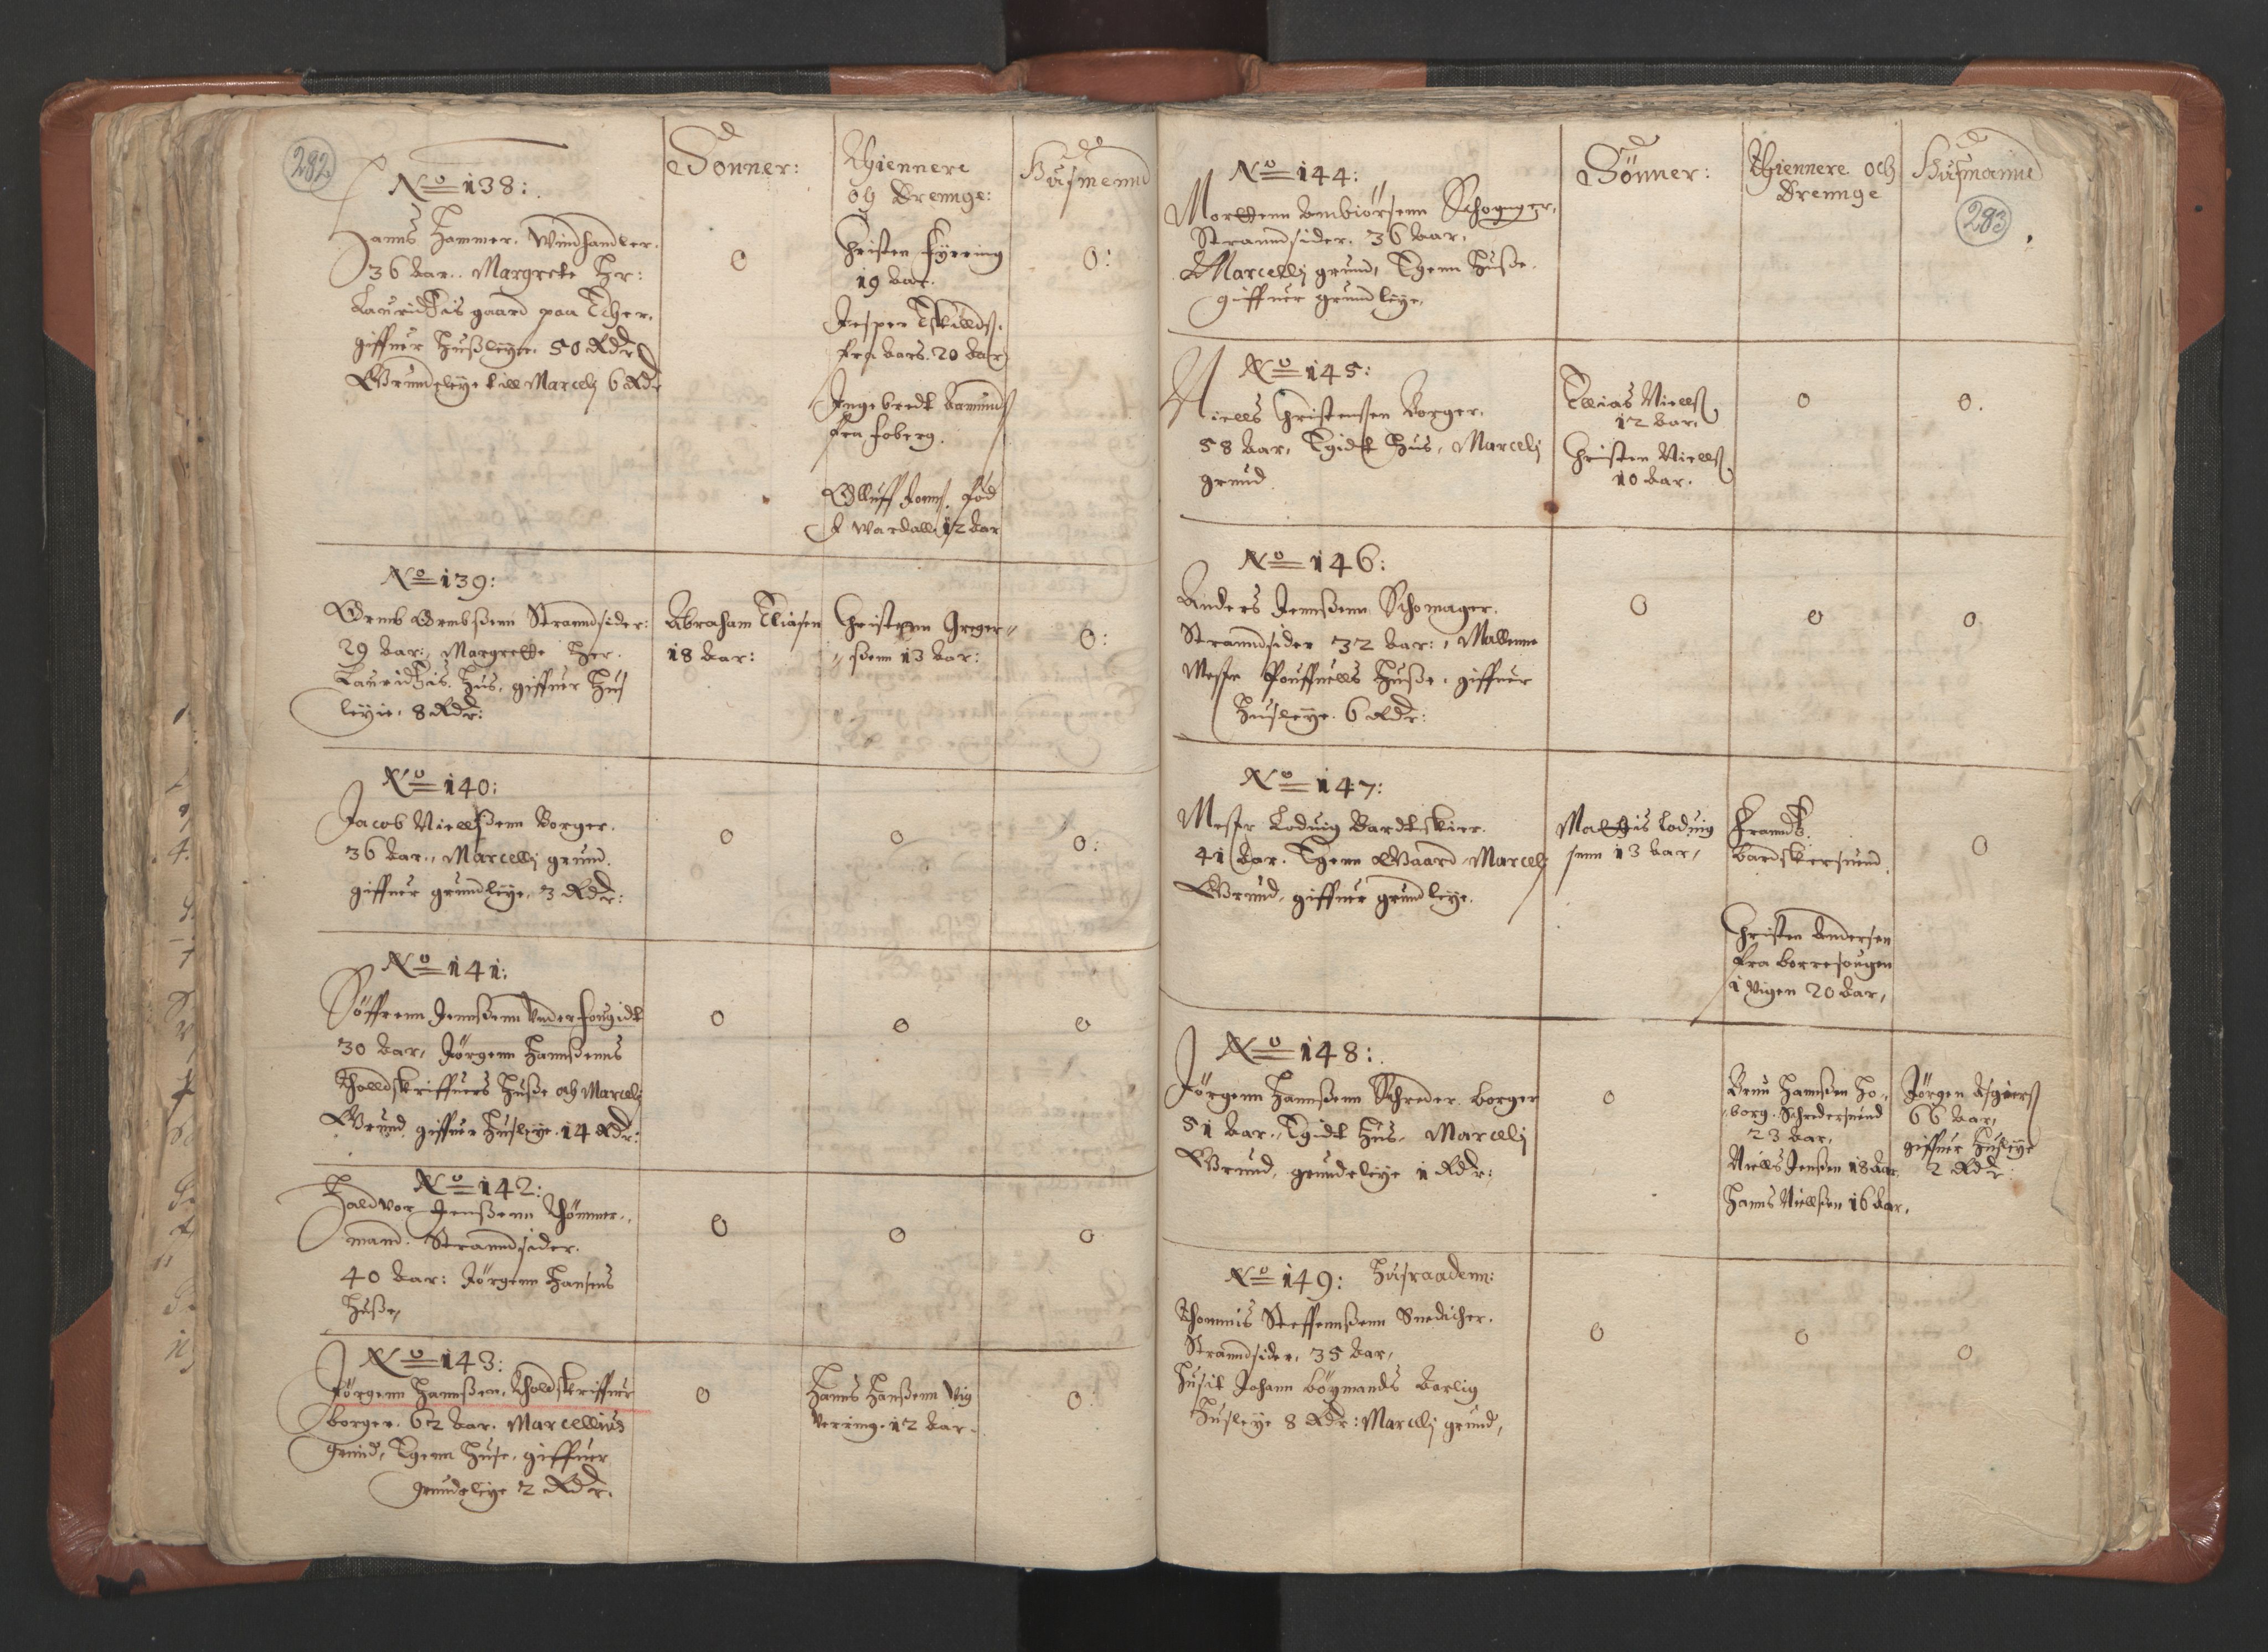 282
No 138:
Sonner:
Thiennere
og Drennge:
Husmennd
Hanns Hammer. Windhandler.
36 Aar. Margrete Hr:
Lauridtzis gaard paa
giffuer Hußleÿe. 50 Rdr
Grundleÿe till Marcelj 6 Rdr
0
Christen Fÿrring
19 Aar.
Jesper Eskilds.
fra Aars. 20 Aar
Ingebredt Aamunds
fra Foberg.
Olluff Jonns. Fød
i Wardall 12 Aar
0:
No 139:
Ormb Ormbßenn Stranndsider:
29 Aar:, Margrette Her.
Lauridtzis. Hus, giffuer Hus
leÿie, 8 Rdr:
Abraham Eliasen
18 Aar:
Christenn Greger„
„ßenn 13 Aar:
0:
No 140:
Jacob Niellßenn Borger.
36 Aar., Marcellj grund.
giffuer grundleÿe, 3 Rdr:
0
0
0:
No 141:
Søffrenn Jennßenn Underfougidt
30 Aar, Jørgenn Hannßenns
Tholldskriffuers Huße och Marcelj
Grund, giffuer Husleÿe. 14 Rdr:
0
0
0
No 142:
Haldvor Jenßenn Thømmer„
mand. Stranndsider.
40 Aar: Jørgenn Hansens
Huße,
0
0
0
No 143:
Jørgenn Hannßen. Tholdskriffuer
borger. 62 Aar. Marcellius
grund, Egenn Huse, giffuer
grundeleÿe 2 Rdr.
0
Hanns Hanßenn Vig
Verring. 12 Aar.
0:
No 144:
Sønner:
Thiennere och
Drennge
Husmannd
283
Mortenn Ambiørsenn
Stranndsider. 36 Aar,
Marcellj grund, Egenn Huße.
giffuer grundleÿe,
No 145:
Niells Christensen Borger.
58 Aar, Egidt Hus, Marcelj
grund
Ellias Niells.
12 Aar,
Christen Niells.
10 Aar.
0
0.
No 146:
Anders Jennßenn Schomager.
Stranndsider 32 Aar:, Mallenne
Mester Pouffuells Huße. giffuer
Husleÿe. 6 Rdr:
0
0
0
No 147:
Mester Loduig Bardtskier.
41 Aar. Egenn Gaard Marcelj
Grund, giffuer grundleÿe.
Mattis Loduig
senn 13 Aar,
Franndtz.
Bardskersuend
Christen Andersen
fra Borresougen
i Vigen 20 Aar,
0
No 148:
Jørgenn Hannßenn Schreder borger
51 Aar., Egidt Hus, Marcelj
Grund, grundeleÿe 1 Rdr:
0
Hannßen Ho„
„borg. Schredersuend
23 Aar,
Niells Jenßen 18 Aar
Hanns Niellßen 16 Aar,
Jørgen Asgiers.
66 Aar,
giffuer Husleÿe
2 Rdr.
No 149: Husraadenn:
Thommis Steffennßenn Snedicher.
Stranndsider, 35 Aar,
Husit Johann Bøÿmands Aarlig
Husleÿe 8 Rdr: Marcelj grund,
0
0
0